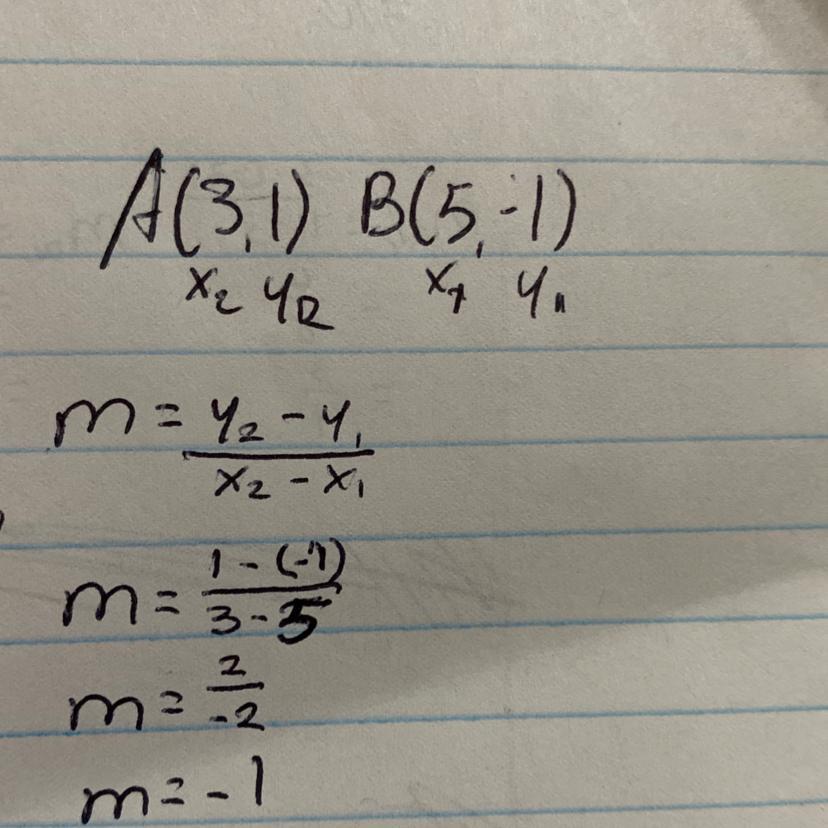 A(3,1) B(5,-1)
x₂ y₂ x₁ y₁
m = y₂ - y₁
x₂ - x₁
m = 1 - (-1)
3 - 5
m = 2
-2
m = -1